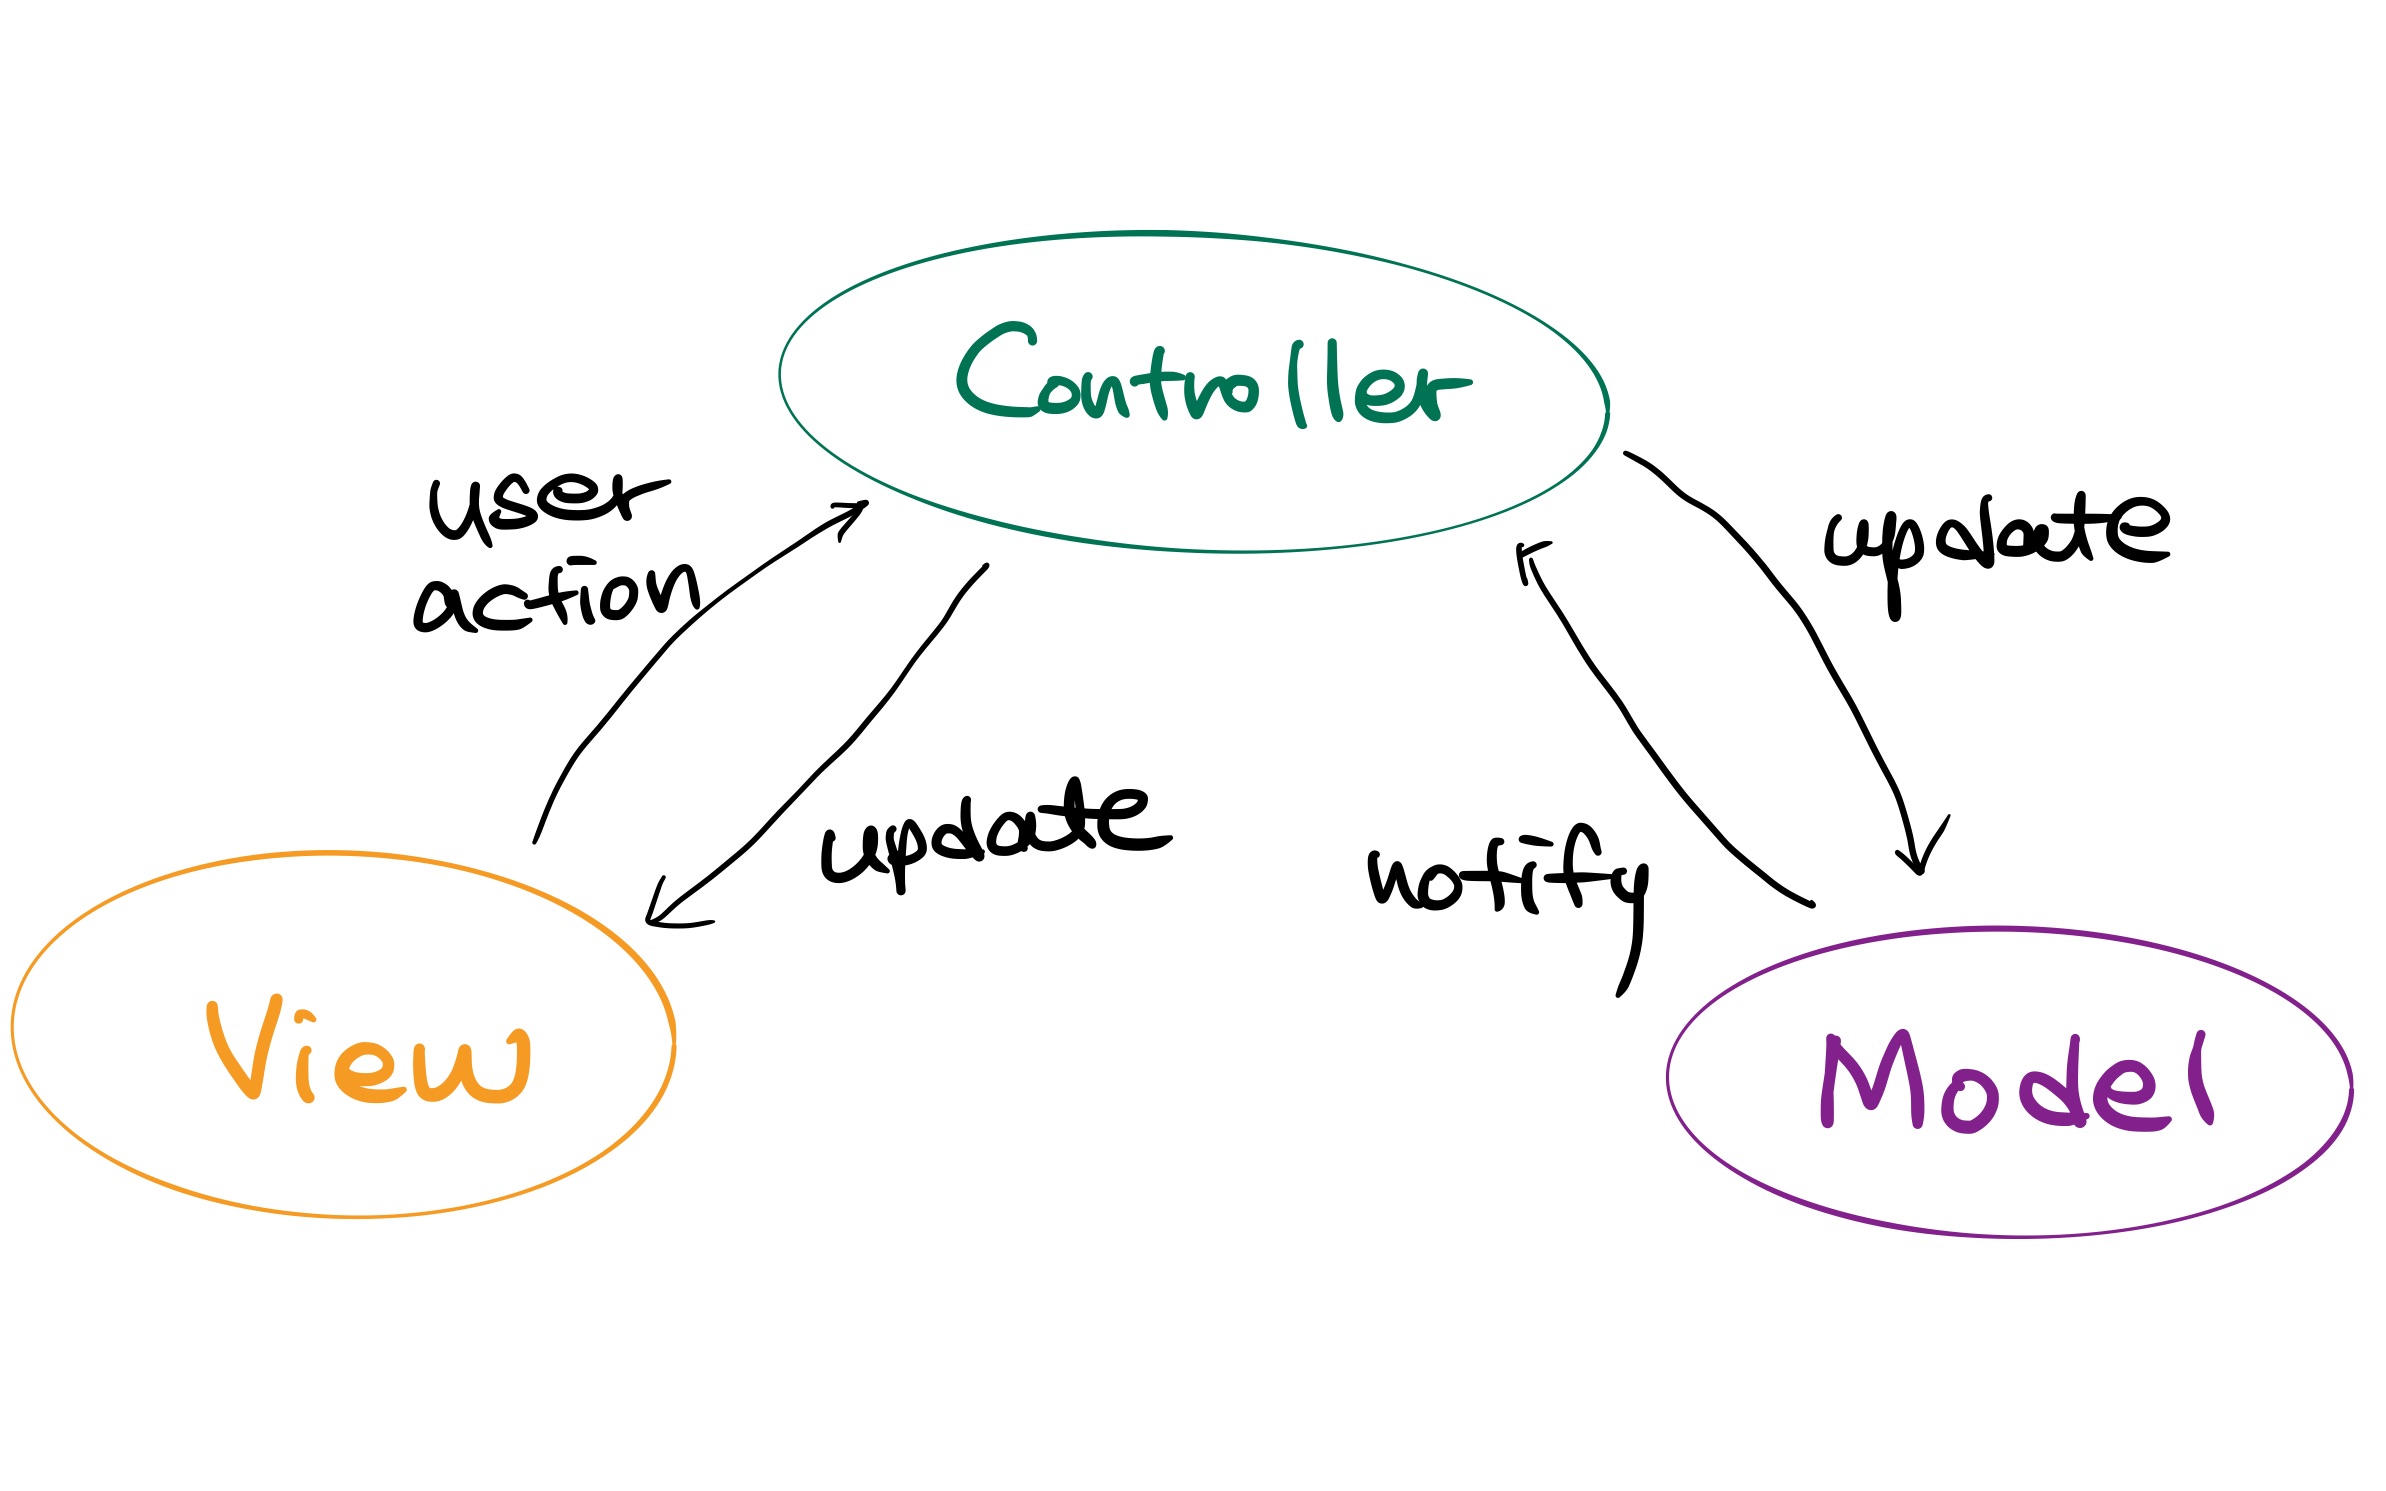 Controller
user
action
update
update
notify
View
Model